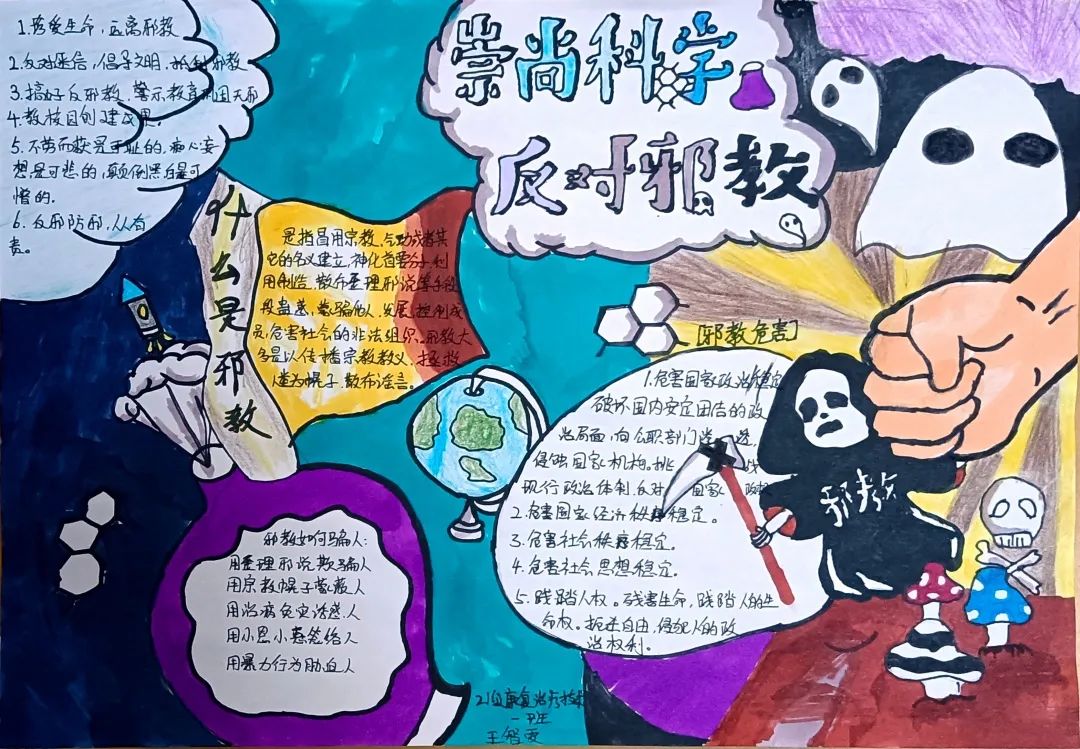 崇尚科学
反对邪教
1.珍爱生命，远离邪教
2.反对迷信，倡导文明，抵制邪教
3.搞好反邪教，警示教育巩固无邪
4.教校园创建成果。
5.不劳而获是可耻的，痴心妄
想是可悲的，颠倒黑白是可
憎的.
6.反邪防邪,从有
责。
什么是邪教
是指冒用宗教、气功或者其
它的名义建立，神化首要分子,利
用制造、散布歪理邪说等手段
段蛊惑，蒙骗他人，发展,控制成
员,危害社会的非法组织。邪教大
多是以传播宗教教义、拯救
人类为幌子,散布谣言。
[邪教危害]
1.危害国家政治稳定
破坏国内安定团结的政
治局面，向公职部门
侵蚀国家机构。挑
现行政治体制,反对 国家
2.危害国家经济秩序稳定。
3.危害社会秩序稳定。
4.危害社会思想稳定。
5.践踏人权。残害生命,践踏人的生
命权。扼杀自由,侵犯人的政
治权利。
邪教
邪教如何骗人:
用歪理邪说欺骗人
用宗教幌子蒙蔽人
用治病免灾诱惑人
用小恩小惠笼络人
用暴力行为胁迫人
一班